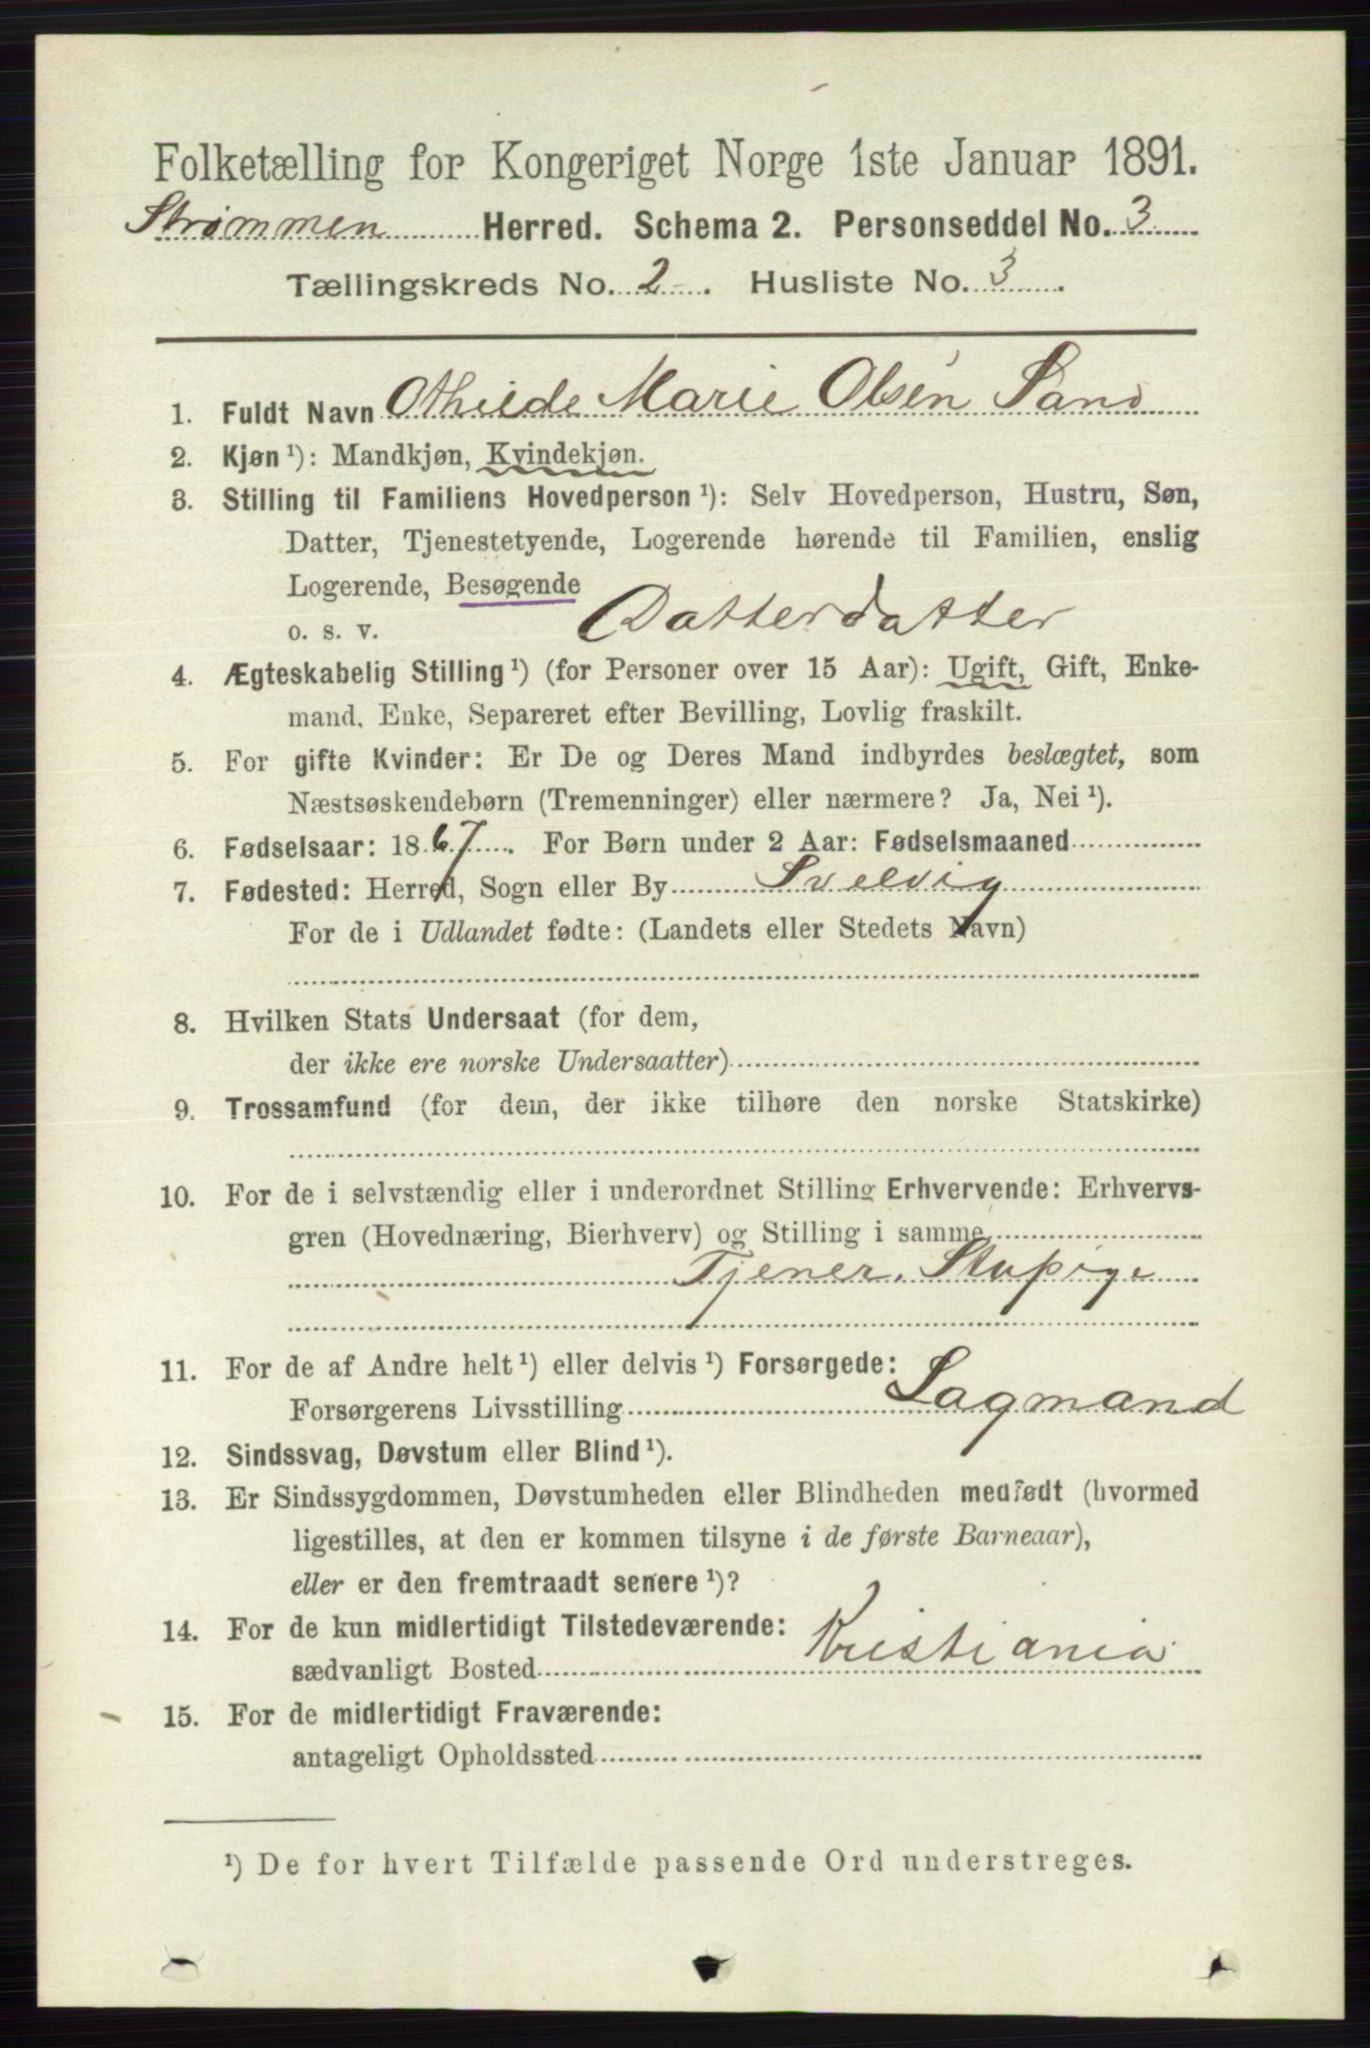 Folketælling for Kongeriget Norge 1ste Januar 1891.
Strømmen Herred. Schema 2. Personseddel No. 3
Tællingskreds No. 2. Husliste No. 3.
1. Fuldt Navn Othilde Marie Olsen Sand
2. Kjøn ¹): Mandkjøn, Kvindekjøn.
3. Stilling til Familiens Hovedperson ¹): Selv Hovedperson, Hustru, Søn,
Datter, Tjenestetyende, Logerende hørende til Familien, enslig
Logerende, Besøgende
o. s. v. Datterdatter
4. Ægteskabelig Stilling ¹) (for Personer over 15 Aar): Ugift, Gift, Enke-
mand, Enke, Separeret efter Bevilling, Lovlig fraskilt.
5. For gifte Kvinder: Er De og Deres Mand indbyrdes beslægtet, som
Næstsøskendebørn (Tremenninger) eller nærmere? Ja, Nei ¹).
6. Fødselsaar: 1867. For Børn under 2 Aar: Fødselsmaaned
7. Fødested: Herred, Sogn eller By Svelvig
For de i Udlandet fødte: (Landets eller Stedets Navn)
8. Hvilken Stats Undersaat (for dem,
der ikke ere norske Undersaatter)
9. Trossamfund (for dem, der ikke tilhøre den norske Statskirke)
10. For de i selvstændig eller i underordnet Stilling Erhvervende: Erhvervs-
gren (Hovednæring, Bierhverv) og Stilling i samme
Tjener. Stupige
11. For de af Andre helt ¹) eller delvis ¹) Forsørgede:
Forsørgerens Livsstilling Sagmand
12. Sindssvag, Døvstum eller Blind ¹).
13. Er Sindssygdommen, Døvstumheden eller Blindheden medfødt (hvormed
ligestilles, at den er kommen tilsyne i de første Barneaar),
eller er den fremtraadt senere ¹)?
14. For de kun midlertidigt Tilstedeværende:
sædvanligt Bosted Kristiania
15. For de midlertidigt Fraværende:
antageligt Opholdssted
¹) De for hvert Tilfælde passende Ord understreges.